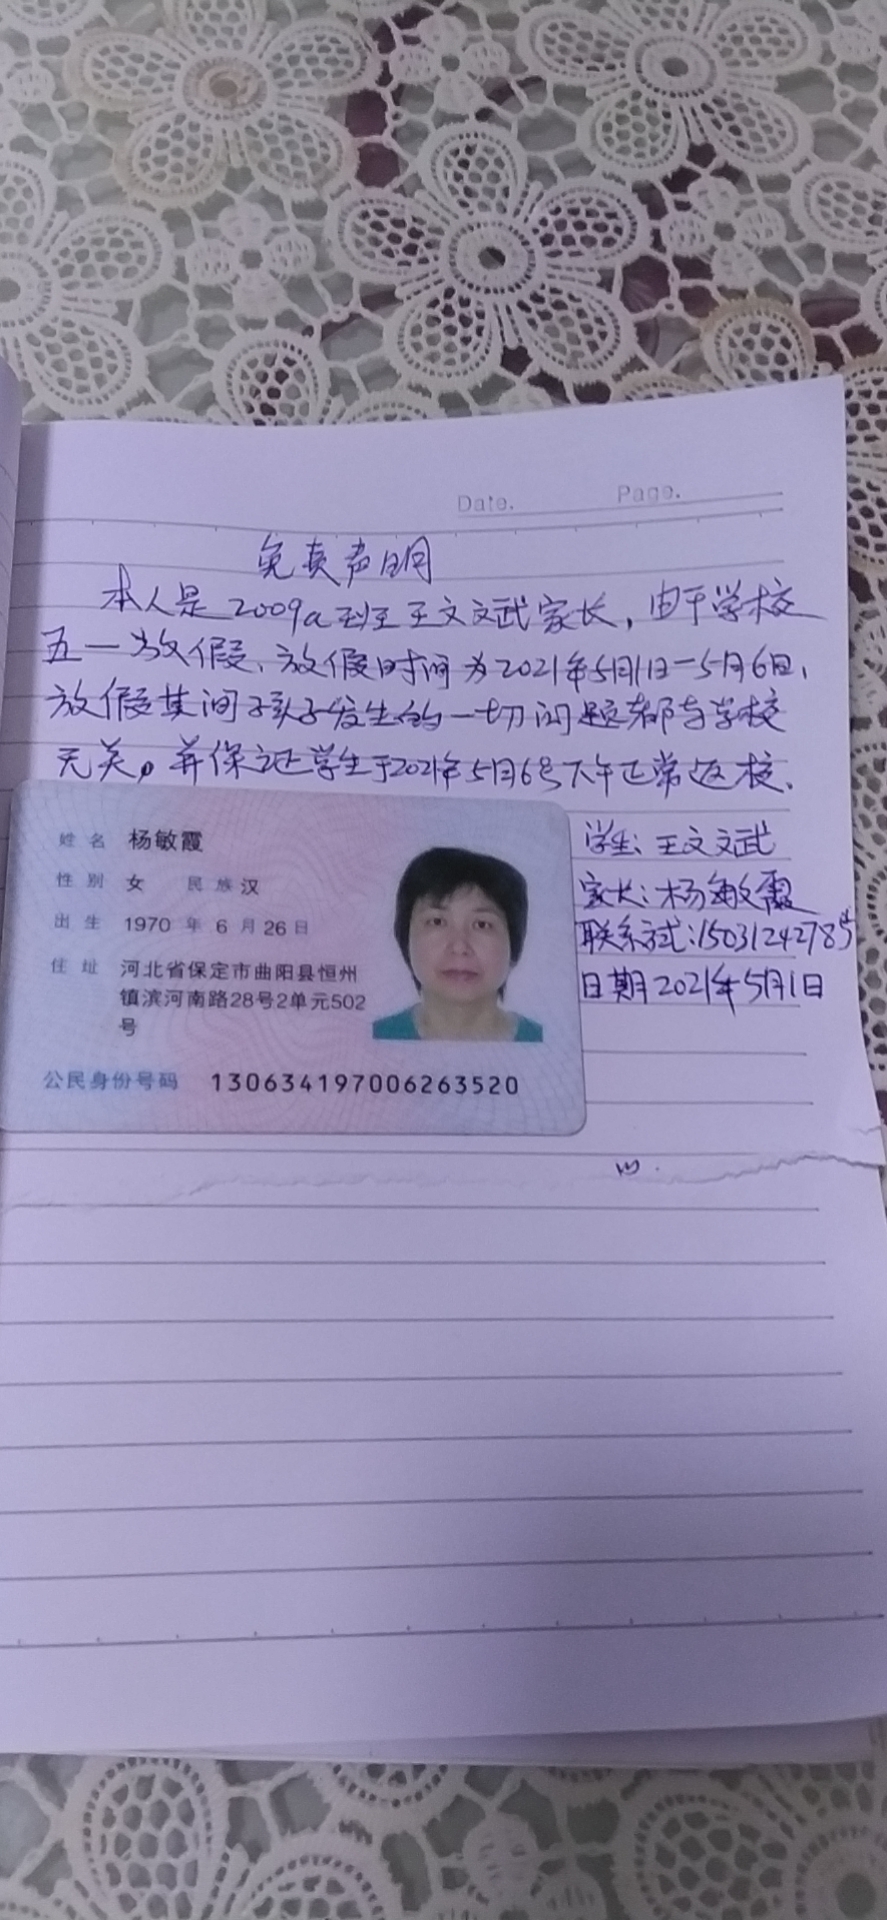 Date.
Page.
免责声明
本人是2009a 王文文武家长，由于学校
五一放假、放假时间为2021年5月1日-5月6日，
放假其间孩子发生的一切问题都与学校
无关。并保证学生于2021年5月6号下午正常返校.
学生: 王文文武
家长: 杨敏霞
联系方式:
日期 2021年5月1日
姓名 杨敏霞
性别 女 民族 汉
出生 1970 年 6 月 26 日
住址 河北省保定市曲阳县恒州
镇滨河南路28号2单元502
号
公民身份号码 130634197006263520